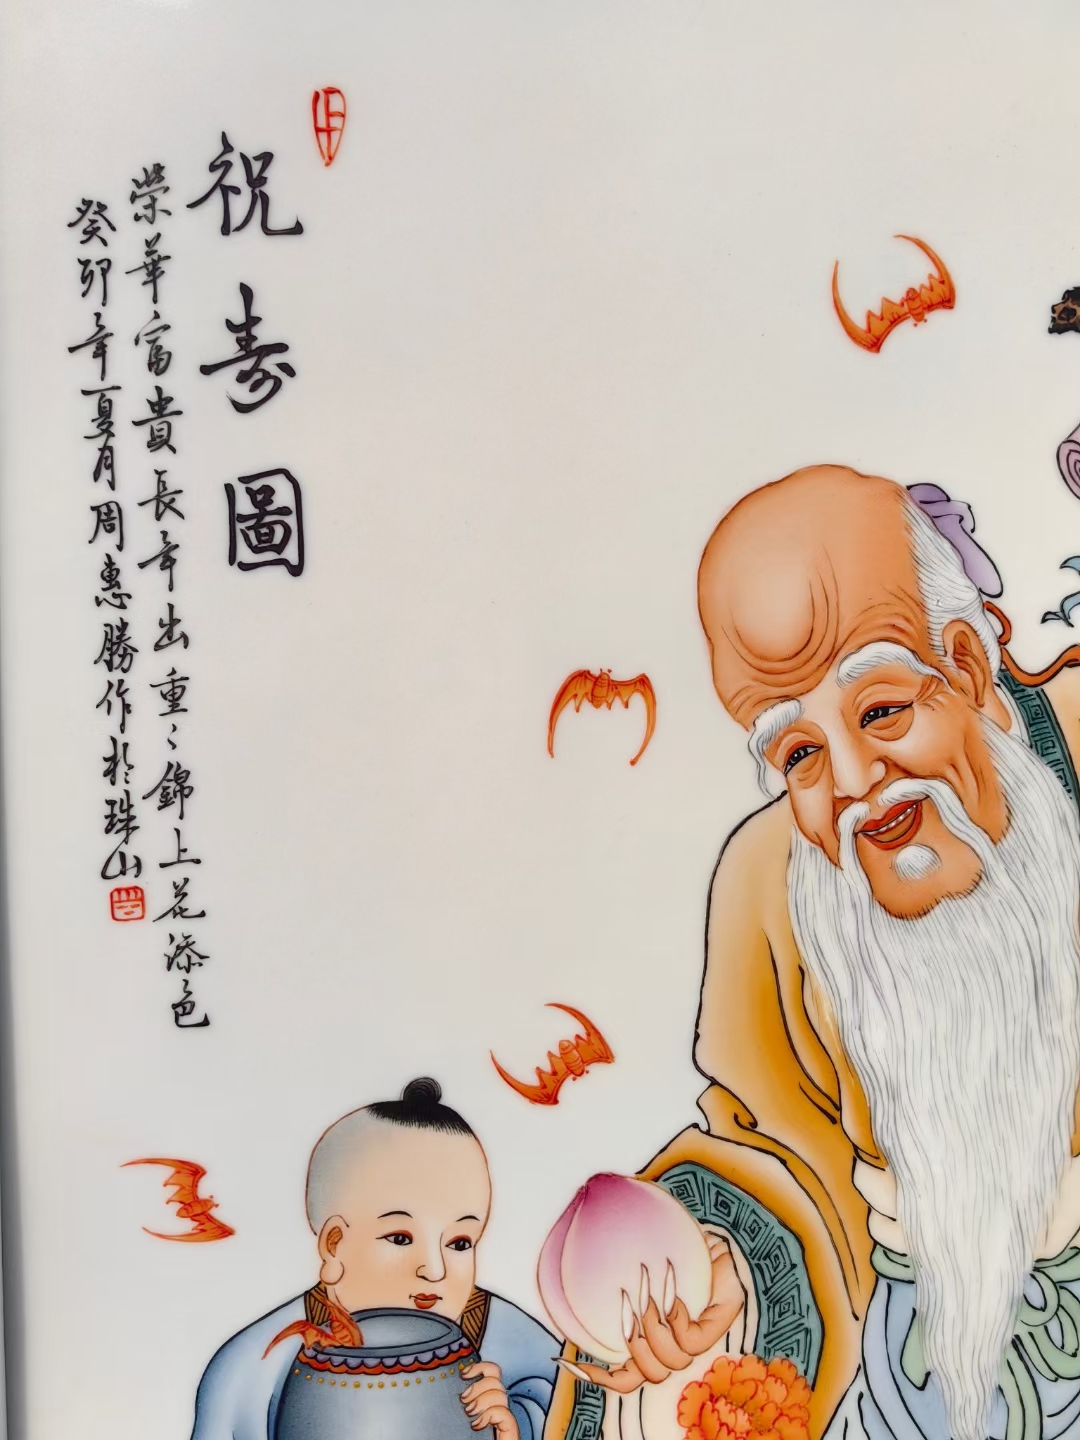 祝壽圖
榮華富貴長年出重重錦上花添色
癸卯年夏月周惠勝作於珠山